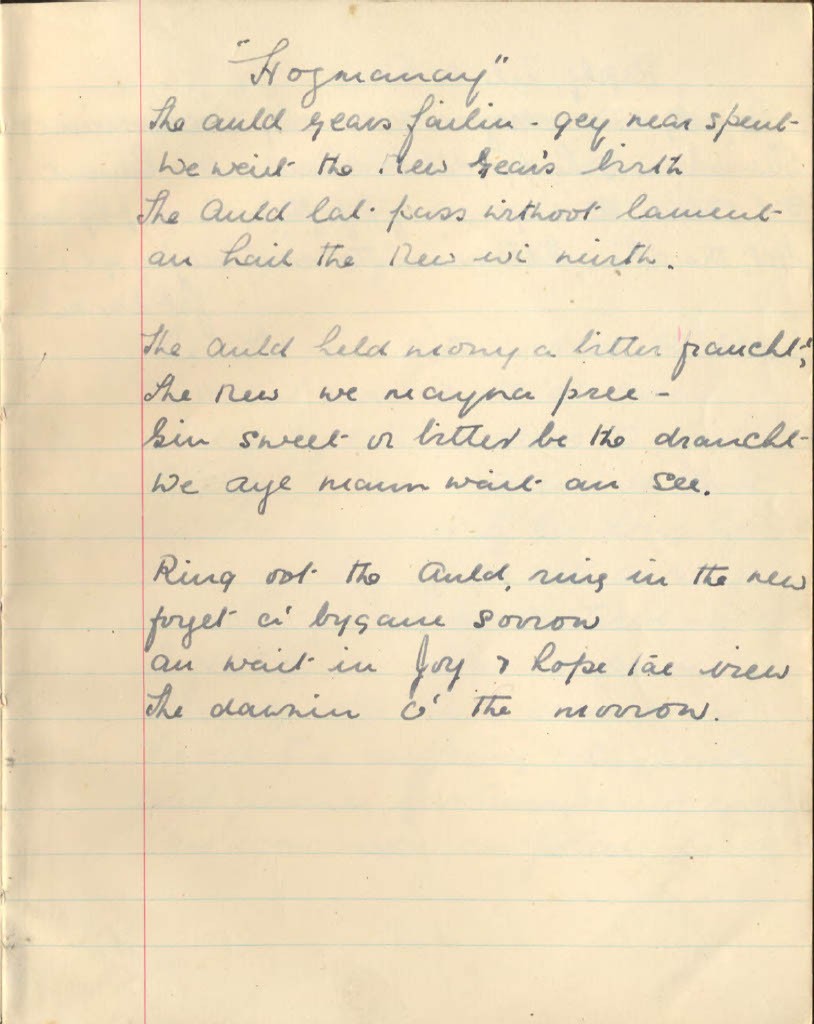 "Hogmanay"
The auld years failin - gey near spent
We wait the New Year's birth
The Auld lat pass withoot lament
an hail the New wi mirth.
The Auld held mony a bitter fraucht,
The New we mayna pree -
Gin sweet or bitter be the draucht
We aye maun wait an see.
Ring oot the Auld, ring in the new
forget a' bygane sorrow
an wait in Joy & hope tae view
The dawnin o' the morrow.